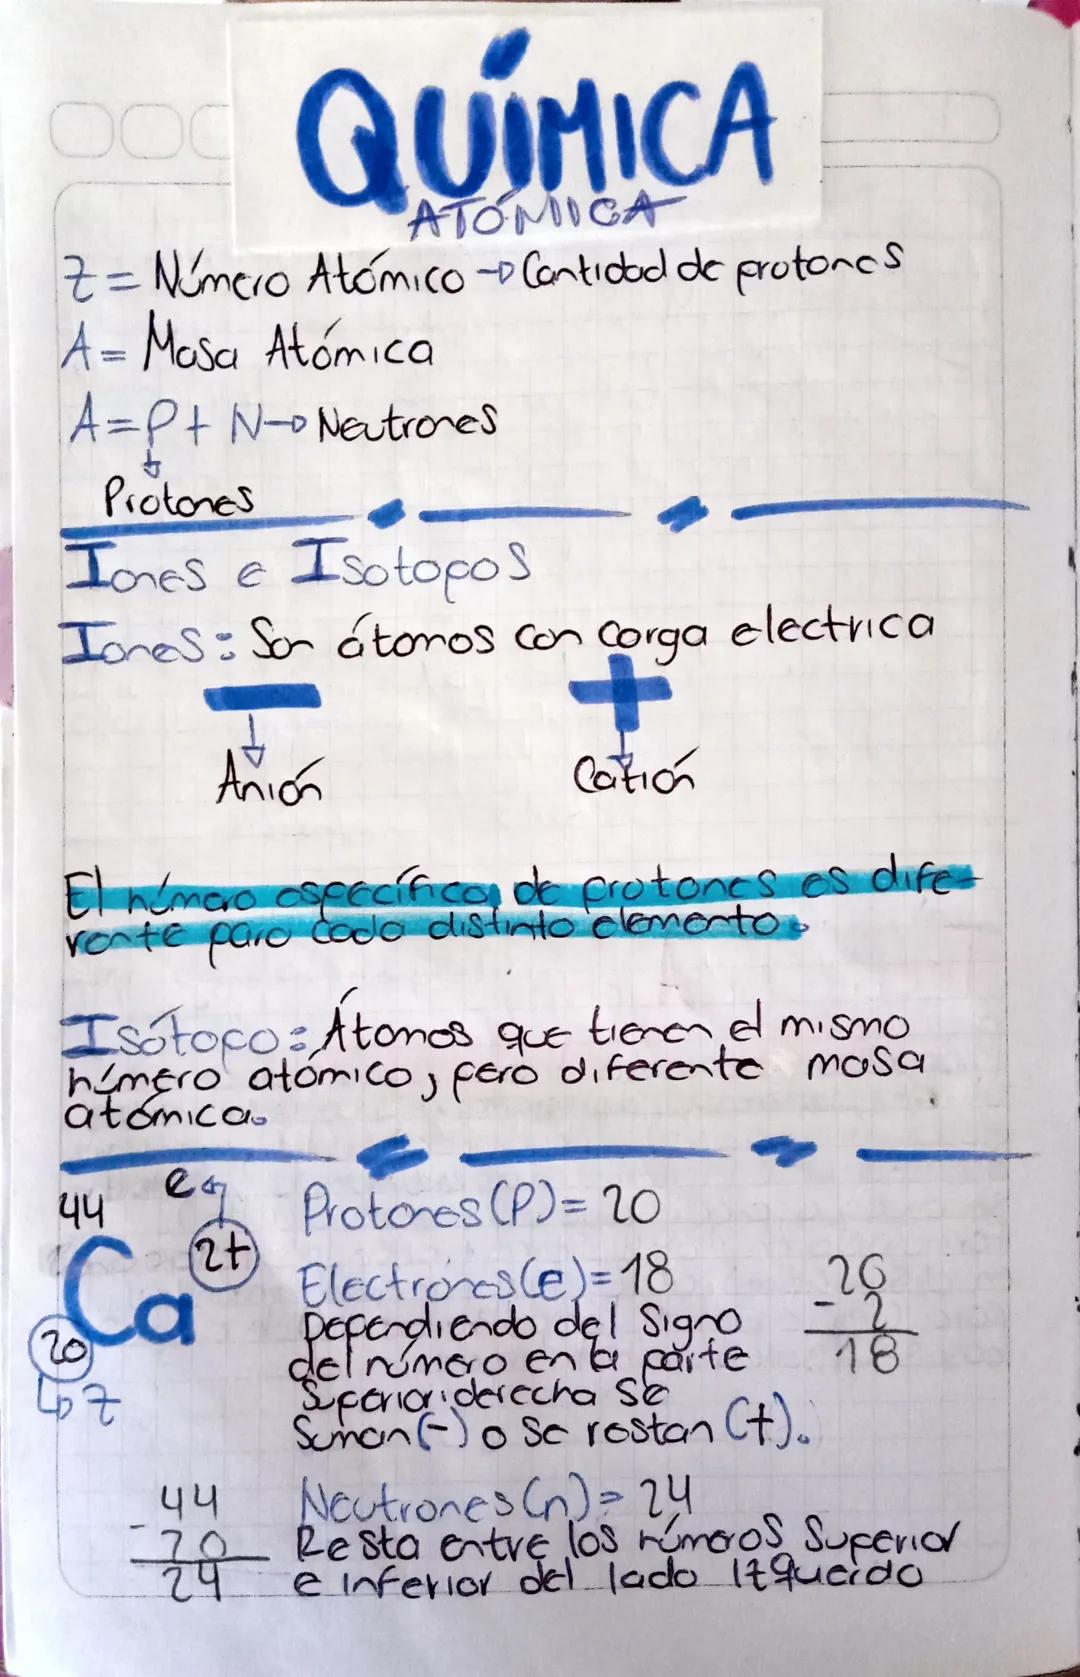 QUÍMICA
ATÓMICA
Z = Número Atómico → Cantidad de protones
A = Masa Atómica
A = P + N → Neutrones
Protones
Iones e Isotopos
Iones: Son átomos con carga electrica
− +
Anión Catión
El número específico, de protones es dife-
rente para cada distinto elemento.
Isótopo: Átomos que tienen el mismo
número atómico, pero diferente masa
atómica.
44 Ca 2+ e
20
→ Z
Protones (P) = 20
Electrones (e) = 18
Dependiendo del signo
del número en la parte
Superior derecha se
Suman (-) o se restan (+).
20
- 2
18
Neutrones (n) = 24
Resta entre los números Superior
e inferior del lado Izquerdo
44
- 20
24